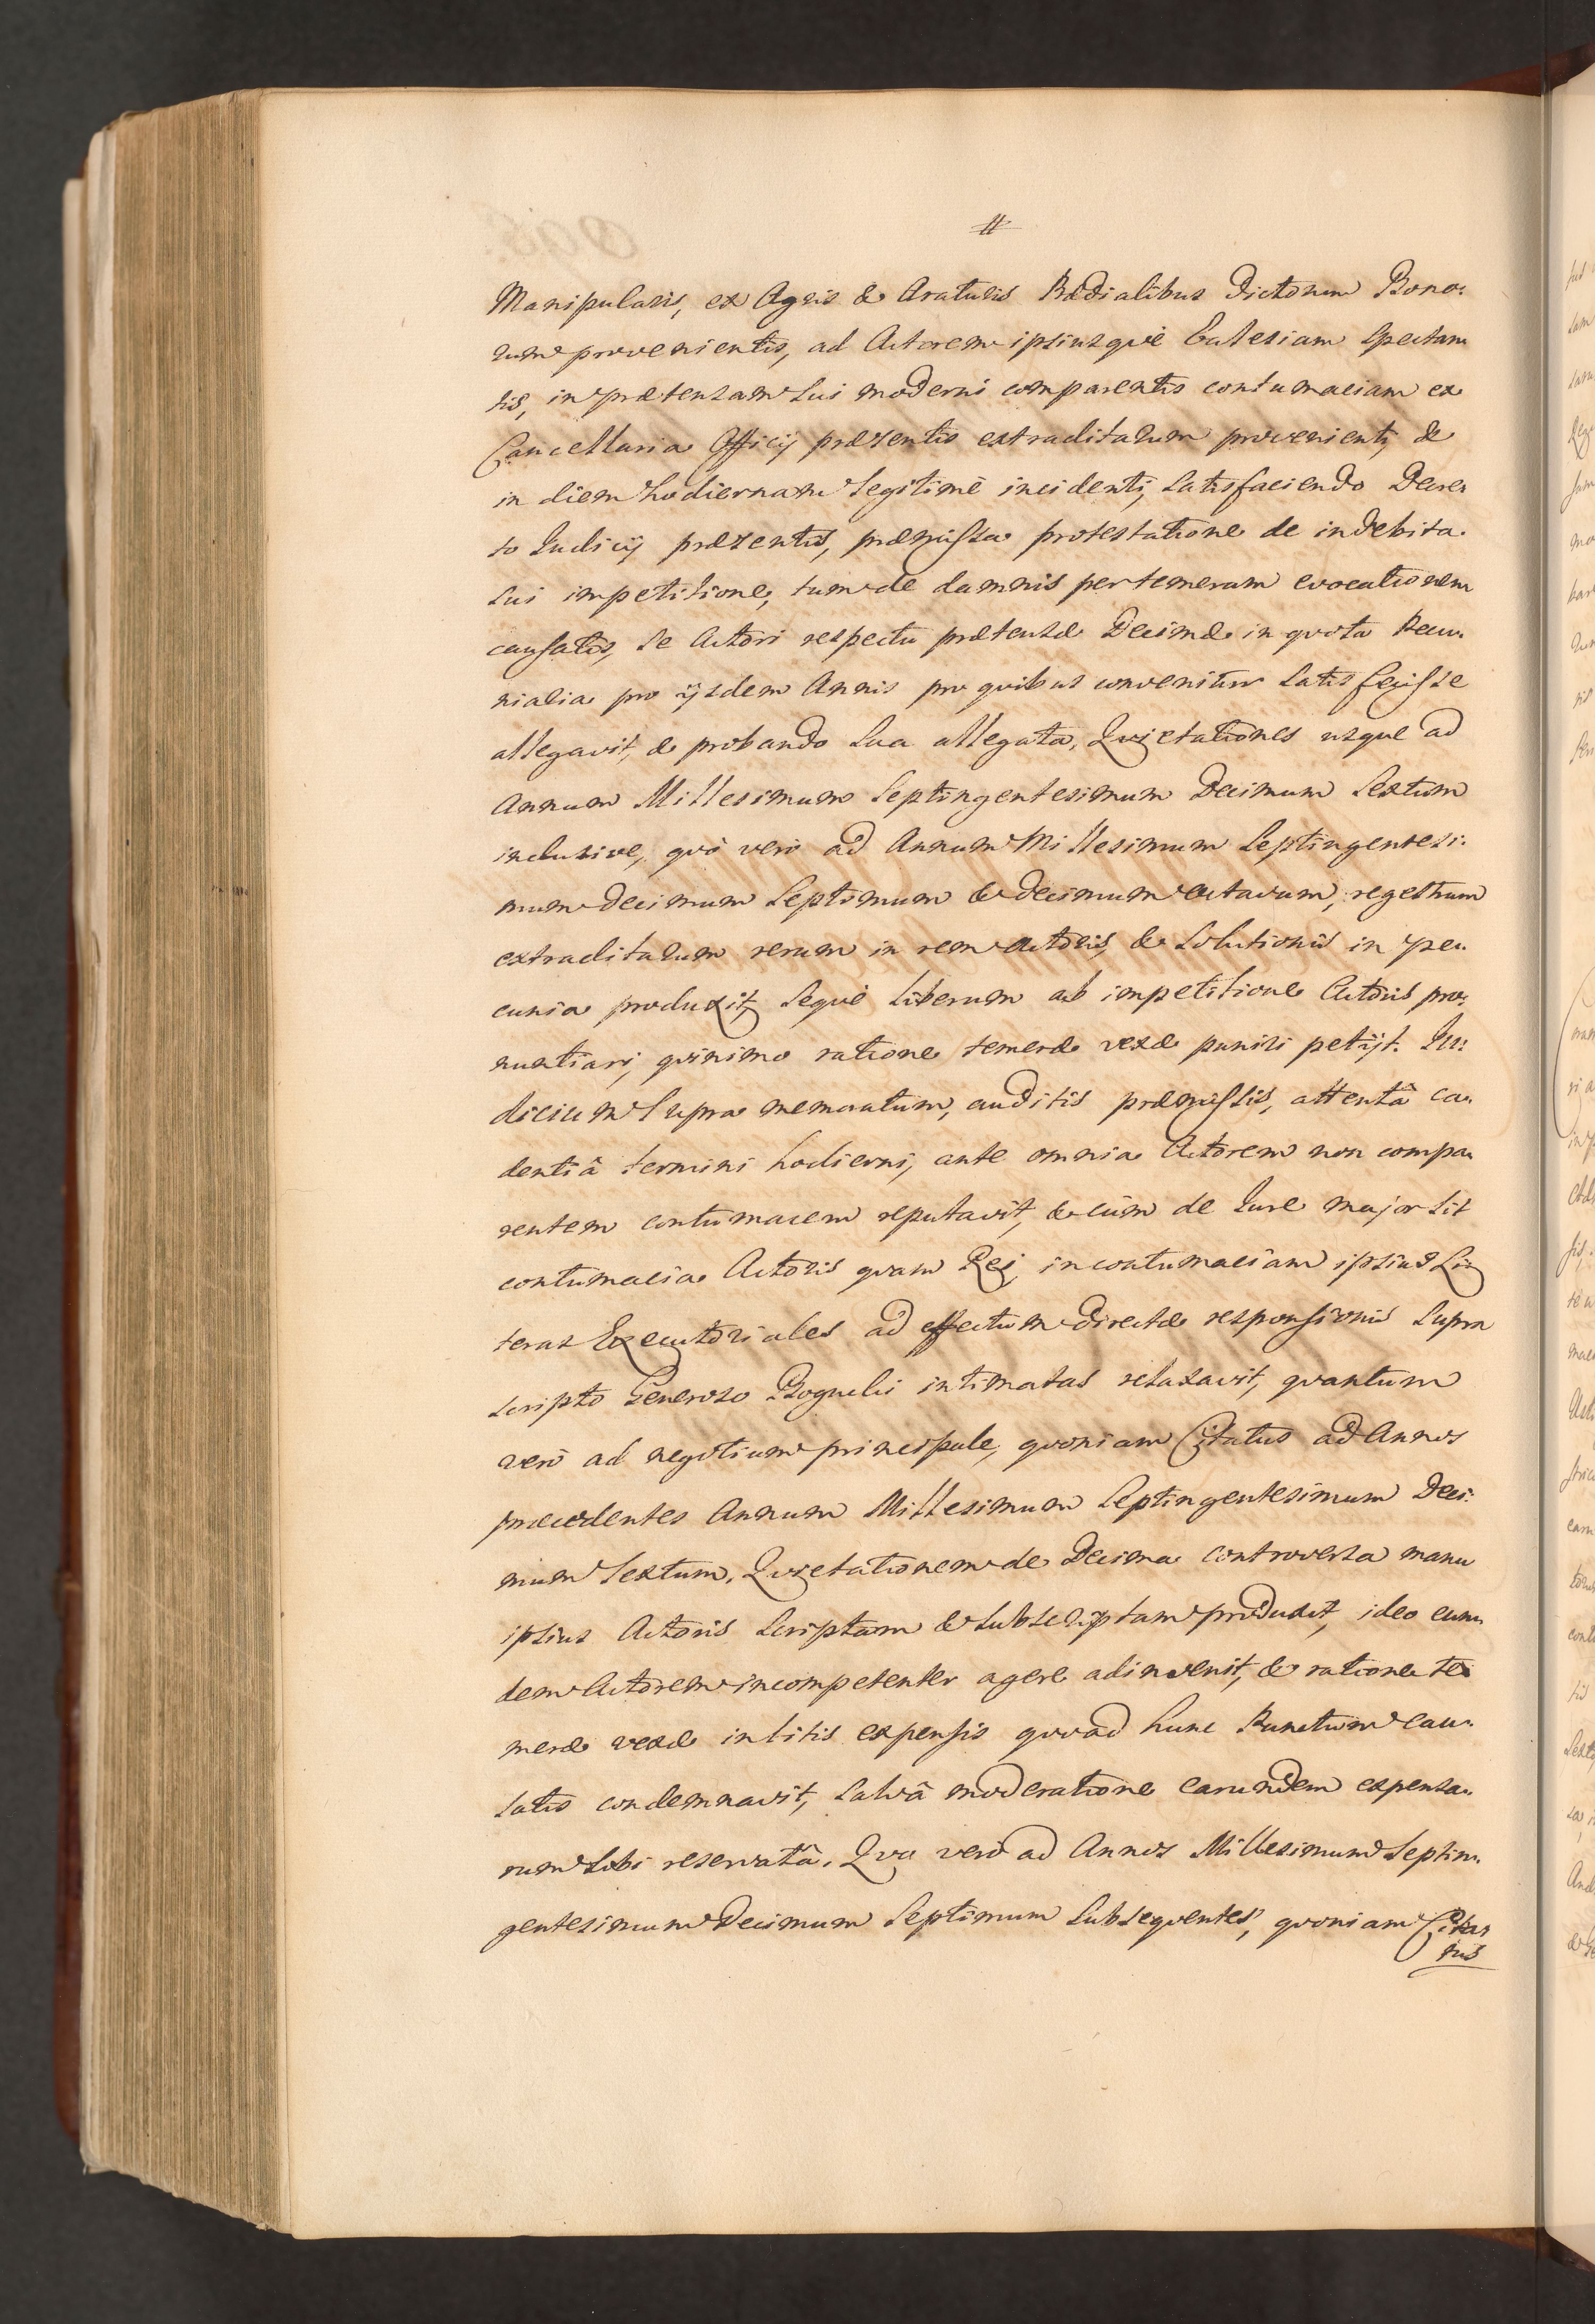 #
Manipularis, ex Agris & Araturis Prædialibus dictorum Bono:
rum provenientis, ad Actorem ipsiusquè Ecclesiam spectan
tis, in prætensam sui moderni comparentis contumaciam ex
Cancellaria Officij præsentis extraditarum provenienti, &
in diem hodiernam legitimè incidenti, satisfaciendo Decre
to Judicij præsentis, præmissa protestatione de indebita
sui impetitione, tum de damnis per temeram evocationem
causatis, se Actori respectu prætensæ Decimæ in quota Pecu
niaria pro ijsdem Annis pro quibus convenitur satisfecisse
allegavit, & probando sua allegata, Quietationes usque ad
Annum Millesimum Septingentesimum Decimum Sextum
inclusive, quò verò ad Annum Millesimum Septingentesi:
mum Decimum Septimum & decimum octavum, regestrum
extraditarum rerum in rem Actoris, & solutionis in pecu
cunia produxit, sequè liberum ab impetitione Actoris pro:
nuntiari, quinimo ratione temeræ vexæ puniri petijt. Ju:
dicium supra memoratum, auditis præmissis, attentâ ca
dentiâ termini hodierni, ante omnia Actorem non compa
rentem contumacem reputavit, & cùm de Jure major sit
contumacia Actoris quam Rei, in contumaciam ipsius Lit
teras Executoriales ad effectum directæ responsionis supra
scripto Generoso Rogucki intimatas relaxavit, quantum
verò ad negotium principale, quoniam Citatus ad Annos
præcedentes Annum Millesimum Septingentesimum Deci:
mum Sextum, Quietationem de Decima controversa manu
ipsius Actoris scriptam & subscriptam produxit, ideo eun
dem Actorem incompetenter agere adinvenit, & ratione te
meræ vexæ in litis expensis quoad hunc Punctum cau
satis condemnavit, salvâ moderatione earundem expensa
rum sibi reservatâ. Quo verò ad Annos Millesimum Septin
gentesimum Decimum Septimum subsequentes, quoniam Cita
tus